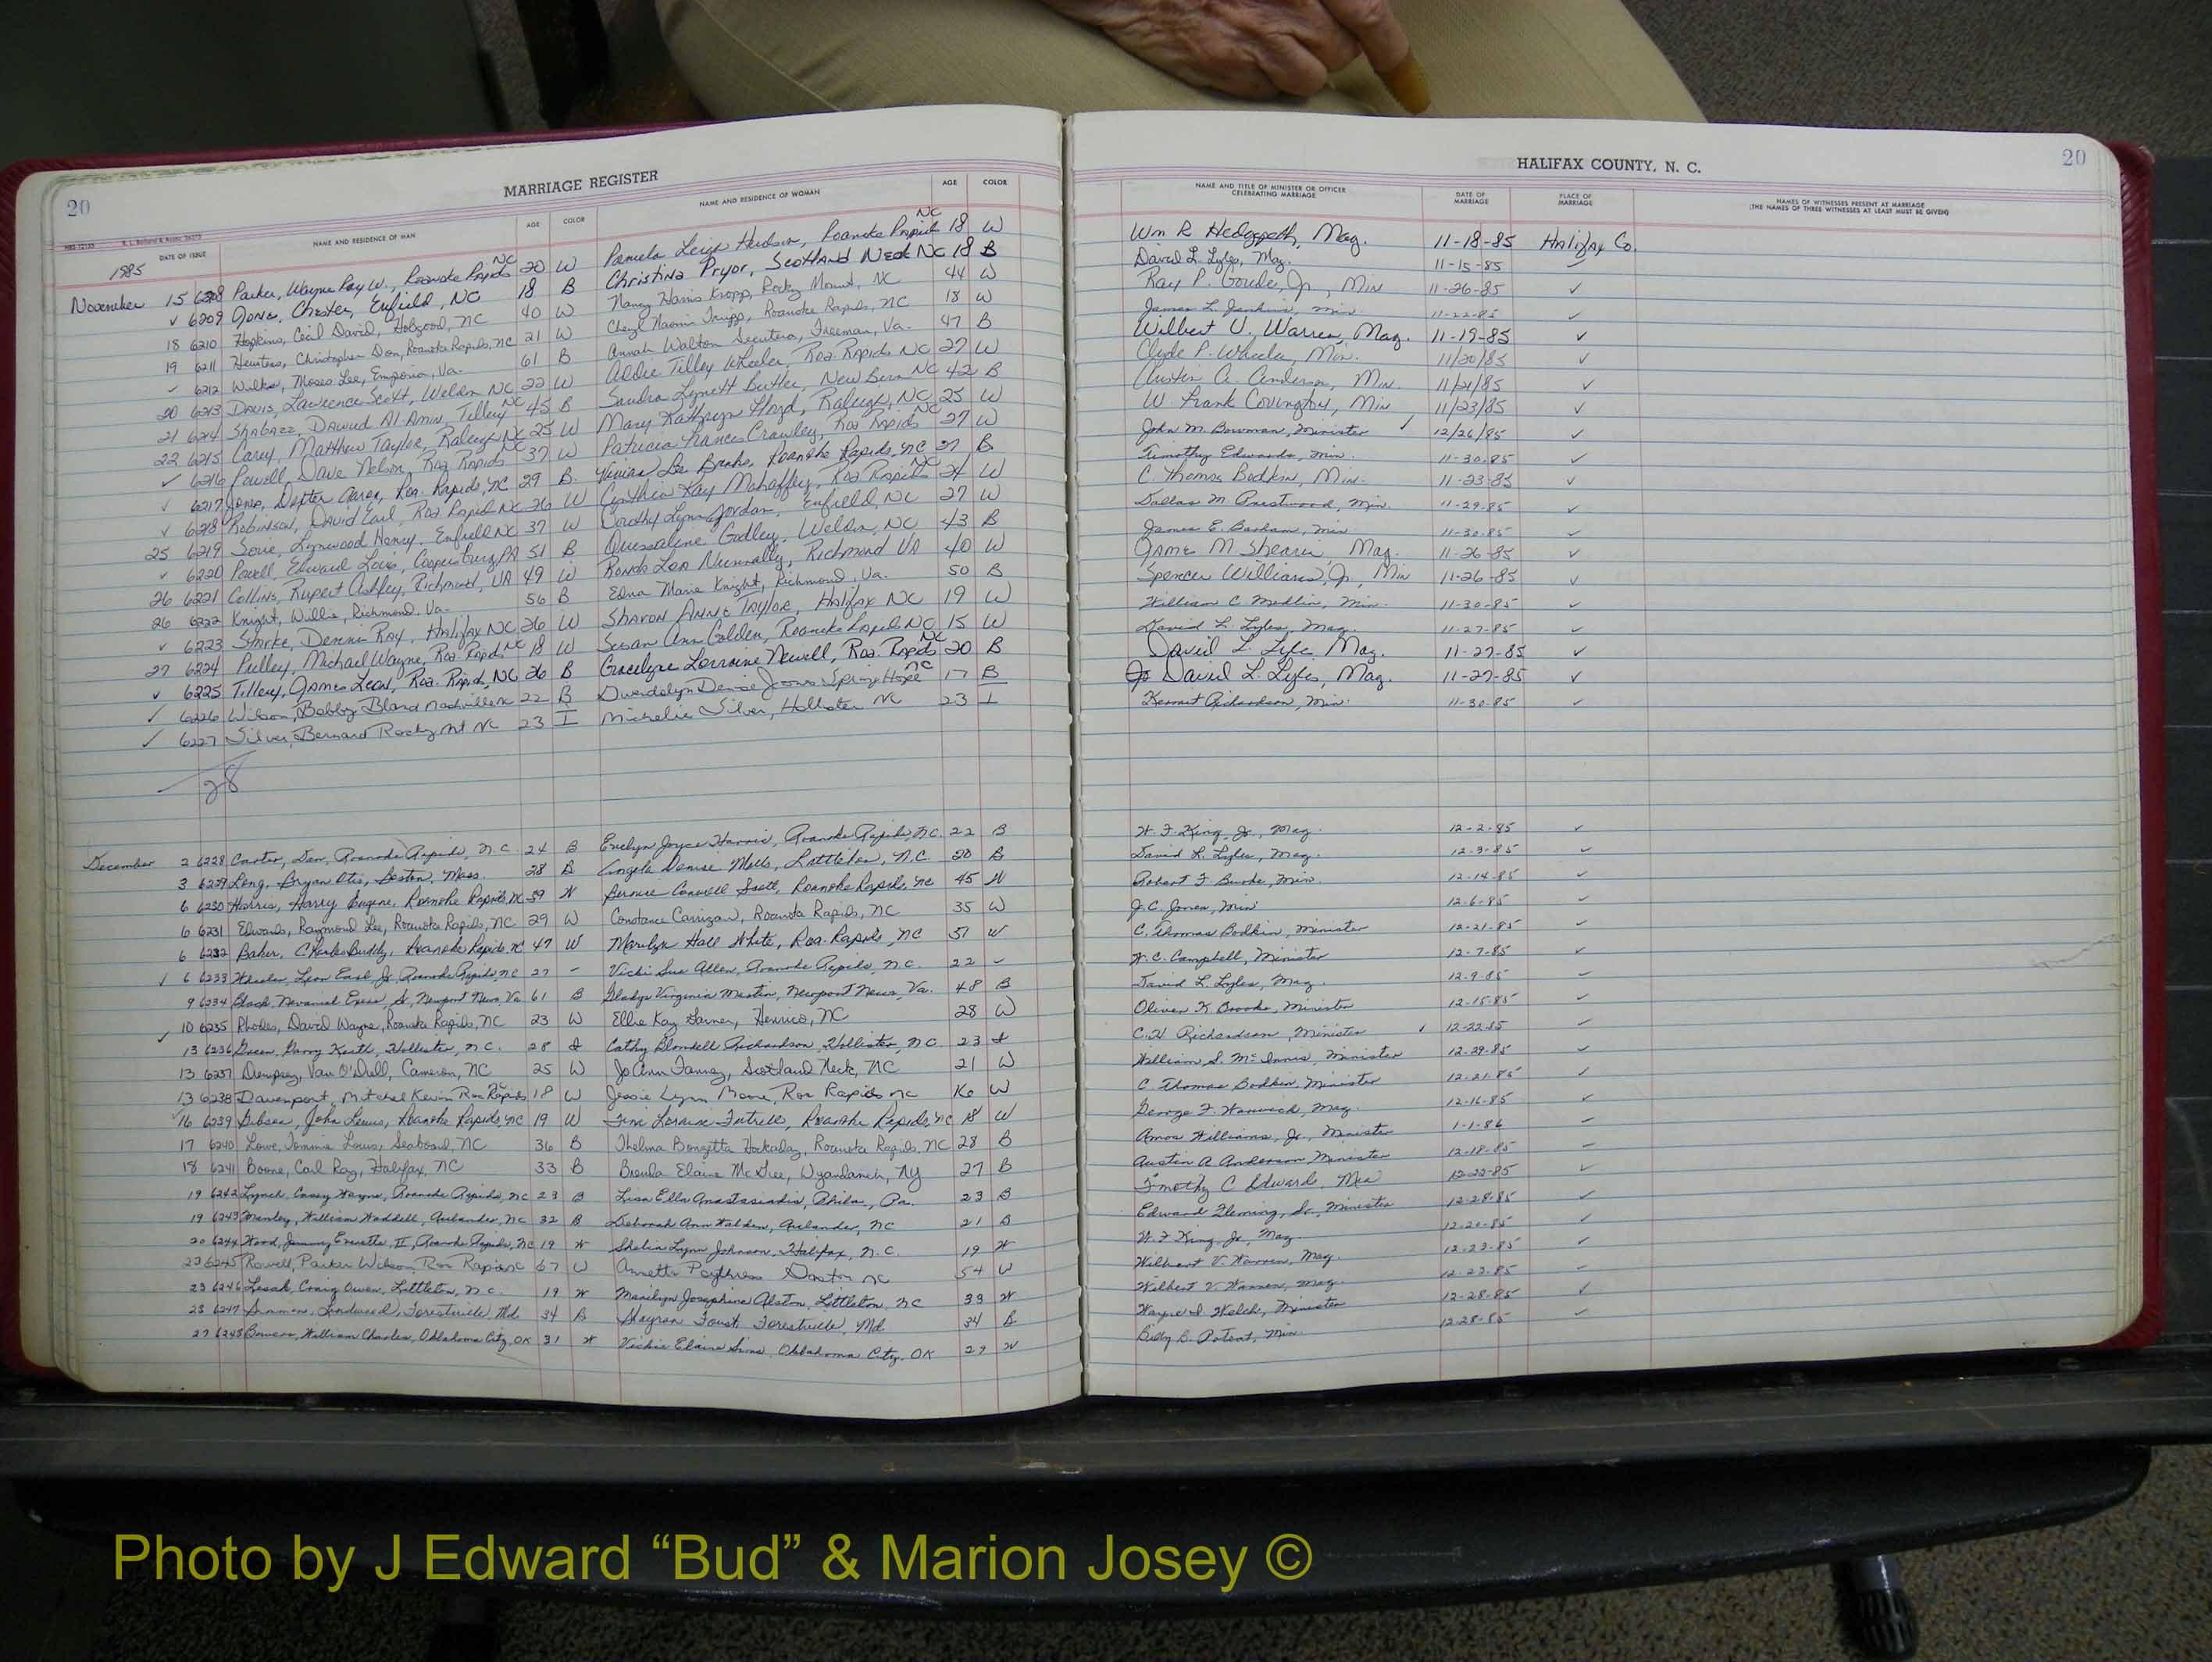 20
MARRIAGE REGISTER
HALIFAX COUNTY, N. C.
20
DATE OF ISSUE
NAME AND RESIDENCE OF MAN
AGE
COLOR
NAME AND RESIDENCE OF WOMAN
AGE
COLOR
NAME AND TITLE OF MINISTER OR OFFICER CELEBRATING MARRIAGE
DATE OF MARRIAGE
PLACE OF MARRIAGE
NAMES OF WITNESSES PRESENT AT MARRIAGE
(THE NAMES OF THREE WITNESSES AT LEAST MUST BE GIVEN)
1985
November 15 6208 Parker, Wayne Ray W., Roanoke Rapids NC 20 W Pamela Leigh Hudson, Roanoke Rapids NC 18 W Wm R Hedgepeth, Mag. 11-18-85 Halifax Co.
✓ 6209 Jones, Chester, Enfield, NC 18 B Christina Pryor, Scotland Neck NC 18 B David L. Lyles, Mag. 11-15-85 ✓
18 6210 Hopkins, Cecil David, Hobgood, NC 40 W Nancy Harris Kropp, Rocky Mount, NC 44 W Ray P. Goude, Jr., Min 11-26-85 ✓
19 6211 Christopher Don, Roanoke Rapids, NC 21 W Cheryl Naomi Tripp, Roanoke Rapids, NC 18 W James L. Jenkins, Min. 11-22-85 ✓
✓ 6212 Moses Lee, Emporia, Va. 61 B Annah Walton Freeman, Va. 47 B Wilbert V. Warren, Mag. 11-19-85 ✓
20 6213 Davis, Lawrence Scott, Weldon NC 22 W Addie Tilley Wheeler, Roa Rapids NC 27 W Clyde P. Wheeler, Min. 11/20/85 ✓
21 6214 Shabazz, Dawud Al-Amin, Tillery NC 45 B Sandra Lynett Butler, New Bern NC 42 B Austin A. Anderson, Min. 11/21/85 ✓
22 6215 Carey, Matthew Taylor, Raleigh NC 25 W Mary Kathryn Floyd, Raleigh, NC 25 W W. Frank Covington, Min 11/23/85 ✓
✓ 6216 Powell, Dave Nelson, Roa Rapids 37 W Patricia Frances Crawley, Roa Rapids NC 27 W John M. Bowman, Minister ✓ 12/26/85 ✓
✓ 6217 Jones, Roa. Rapids, NC 29 B Vivian Lee Banks, Roanoke Rapids, NC 27 B Timothy Edwards, Min. 11-30-85 ✓
✓ 6218 Robinson, David Earl, Roa Rapids NC 26 W Cynthia Kay Mahaffey, Roa Rapids NC 24 W C. Thomas Bodkin, Min. 11-23-85 ✓
25 6219 Lynwood Henry, Enfield NC 37 W Dorothy Lynn Jordan, Enfield, NC 27 W Dallas M. Prestwood, Min. 11-29-85 ✓
✓ 6220 Powell, Edward Louis, Coopersburg, PA 51 B Godley, Weldon, NC 43 B James E. Basham, Min 11-30-85 ✓
26 6221 Collins, Rupert Ashley, Richmond, VA 49 W Ronda Lea Nunnally, Richmond VA 40 W James M Shearin Mag. 11-26-85 ✓
26 6222 Knight, Willie, Richmond, Va. 56 B Edna Marie Knight, Richmond, Va. 50 B Spencer Williams, Jr., Min 11-26-85 ✓
✓ 6223 Starke, Dennis Ray, Halifax NC 26 W Sharon Anne Taylor, Halifax NC 19 W William C. Medlin, Min. 11-30-85 ✓
27 6224 Pulley, Michael Wayne, Roa Rapids NC 18 W Susan Ann Golden, Roanoke Rapids NC 15 W David L. Lyles, Mag. 11-27-85 ✓
✓ 6225 Tillery, James Leon, Roa. Rapids, NC 26 B Lorraine Newell, Roa. Rapids NC 20 B David L. Lyles Mag. 11-27-85 ✓
✓ 6226 Wilson, Bobby Bland Nashville NC 22 B Gwendolyn Denise Jones Spring Hope NC 17 B David L. Lyles, Mag. 11-27-85 ✓
✓ 6227 Silver, Bernard Rocky Mt NC 23 I Michelle Silver, Hollister NC 23 I Kermit Richardson, Min. 11-30-85 ✓
28
December 2 6228 Carter, Roanoke Rapids, N.C. 24 B Evelyn Joyce Harris, Roanoke Rapids, N.C. 22 B W. F. King, Jr., Mag. 12-2-85 ✓
3 6229 Long, Bryan Otis, Boston, Mass. 28 B Angela Denise Mills, Littleton, N.C. 20 B David L. Lyles, Mag. 12-3-85 ✓
6 6230 Harris, Harry Eugene, Roanoke Rapids, NC 59 W Bernice Scott, Roanoke Rapids, NC 45 W Robert F. Burke, Min. 12-14-85 ✓
6 6231 Edwards, Raymond Lee, Roanoke Rapids, NC 29 W Constance Carrigan, Roanoke Rapids, NC 35 W J. C. Jones, Min 12-6-85 ✓
6 6232 Baker, Charles Buddy, Roanoke Rapids, NC 47 W Marilyn Hall White, Roa. Rapids, NC 37 W C. Thomas Bodkin, Minister 12-21-85 ✓
✓ 6 6233 Wheeler, Leon Earl, Jr, Roanoke Rapids, NC 27 - Vicki Sue Allen, Roanoke Rapids, N.C. 22 - W. C. Campbell, Minister 12-7-85 ✓
9 6234 Newport News, Va 61 B Gladys Virginia Newport News, Va. 48 B David L. Lyles, Mag. 12-9-85 ✓
✓ 10 6235 Rhodes, David Wayne, Roanoke Rapids, NC 23 W Ellie Kay Garner, Henrico, NC 28 W Oliver K. Brooks, Minister 12-15-85 ✓
13 6236 Green, Keith, Hollister, N.C. 28 I Cathy Blondell Richardson, Hollister, N.C. 23 I C. H. Richardson, Minister ✓ 12-22-85 ✓
13 6237 Dempsey, Van O'Dell, Cameron, NC 25 W Jo Ann Scotland Neck, NC 21 W William S. McInnis, Minister 12-29-85 ✓
13 6238 Davenport, Mitchel Kevin Roa Rapids NC 18 W Jessie Lynn Moore, Roa Rapids NC 16 W C. Thomas Bodkin, Minister 12-21-85 ✓
16 6239 Gibson, John Lewis, Roanoke Rapids, NC 19 W Tina Loraine Futrell, Roanoke Rapids, NC 18 W George F. Warwick, Mag. 12-16-85 ✓
17 6240 Lowe, Tommie Louis, Seaboard, NC 36 B Thelma Hockaday, Roanoke Rapids, NC 28 B Amos Williams, Jr., Minister 1-1-86 ✓
18 6241 Boone, Carl Ray, Halifax, NC 33 B Brenda Elaine McGee, Wyandanch, NY 27 B Austin A Anderson Minister 12-18-85 ✓
19 6242 Lynch, Casey Wayne, Roanoke Rapids, NC 23 B Lisa Ella Anastasiadis, Phila., Pa. 23 B Timothy C Edwards, Min 12-22-85 ✓
19 6243 Manley, William Waddell, Aulander, NC 32 B Deborah Ann Walden, Aulander, NC 21 B Edward Fleming, Sr., Minister 12-28-85 ✓
20 6244 Wood, Jimmy Everette, II, Roanoke Rapids, NC 19 W Lynn Johnson, Halifax, N.C. 19 W W. F. King, Jr., Mag. 12-20-85 ✓
23 6245 Rowell, Parker Wilson, Roa Rapids NC 67 W Annette Poythress Gaston NC 54 W Wilbert V. Warren, Mag. 12-23-85 ✓
23 6246 Craig Owen, Littleton, N.C. 19 W Marilyn Josephine Alston, Littleton, NC 33 W Wilbert V. Warren, Mag. 12-23-85 ✓
23 6247 Linwood, Forestville, Md. 34 B Foust, Forestville, Md. 34 B Wayne D. Welch, Minister 12-28-85 ✓
27 6248 Bowers, William Charles, Oklahoma City, OK 31 W Vickie Elaine Sims, Oklahoma City, OK 27 W Billy B. Poteat, Min. 12-28-85 ✓
Photo by J Edward “Bud” & Marion Josey ©